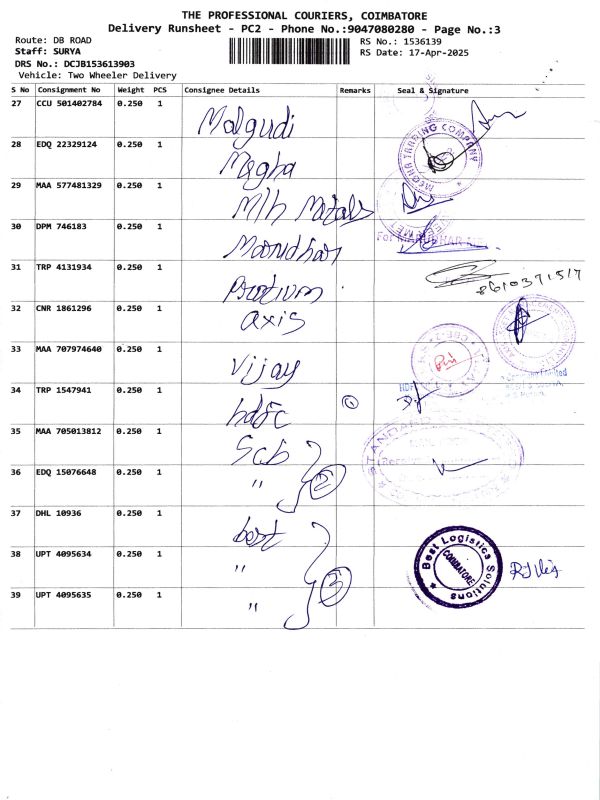 THE PROFESSIONAL COURIERS, COIMBATORE
Delivery Runsheet - PC2 - Phone No.:9047080280 - Page No.:3
Route: DB ROAD
RS No.: 1536139
Staff: SURYA
RS Date: 17-Apr-2025
DRS No.: DCJB153613903
Vehicle: Two Wheeler Delivery
S No Consignment No Weight PCS Consignee Details Remarks Seal & Signature
27 CCU 501402784 0.250 1 Malgudi
28 EDQ 22329124 0.250 1 Megha
MEGHA TRADING COMPANY
29 MAA 577481329 0.250 1 M/h Metals
30 DPM 746183 0.250 1 Marudhar
31 TRP 4131934 0.250 1 Protium
8610371517
32 CNR 1861296 0.250 1 axis
33 MAA 707974640 0.250 1 Vijay
34 TRP 1547941 0.250 1 hdfc 1
HDF
35 MAA 705013812 0.250 1 Scb
STANDARD
36 EDQ 15076648 0.250 1 " 2
37 DHL 10936 1 best
0.250
38 UPT 4095634 0.250 1 "
Best Logistics Solutions
COIMBATORE
39 UPT 4095635 0.250 1 " 3